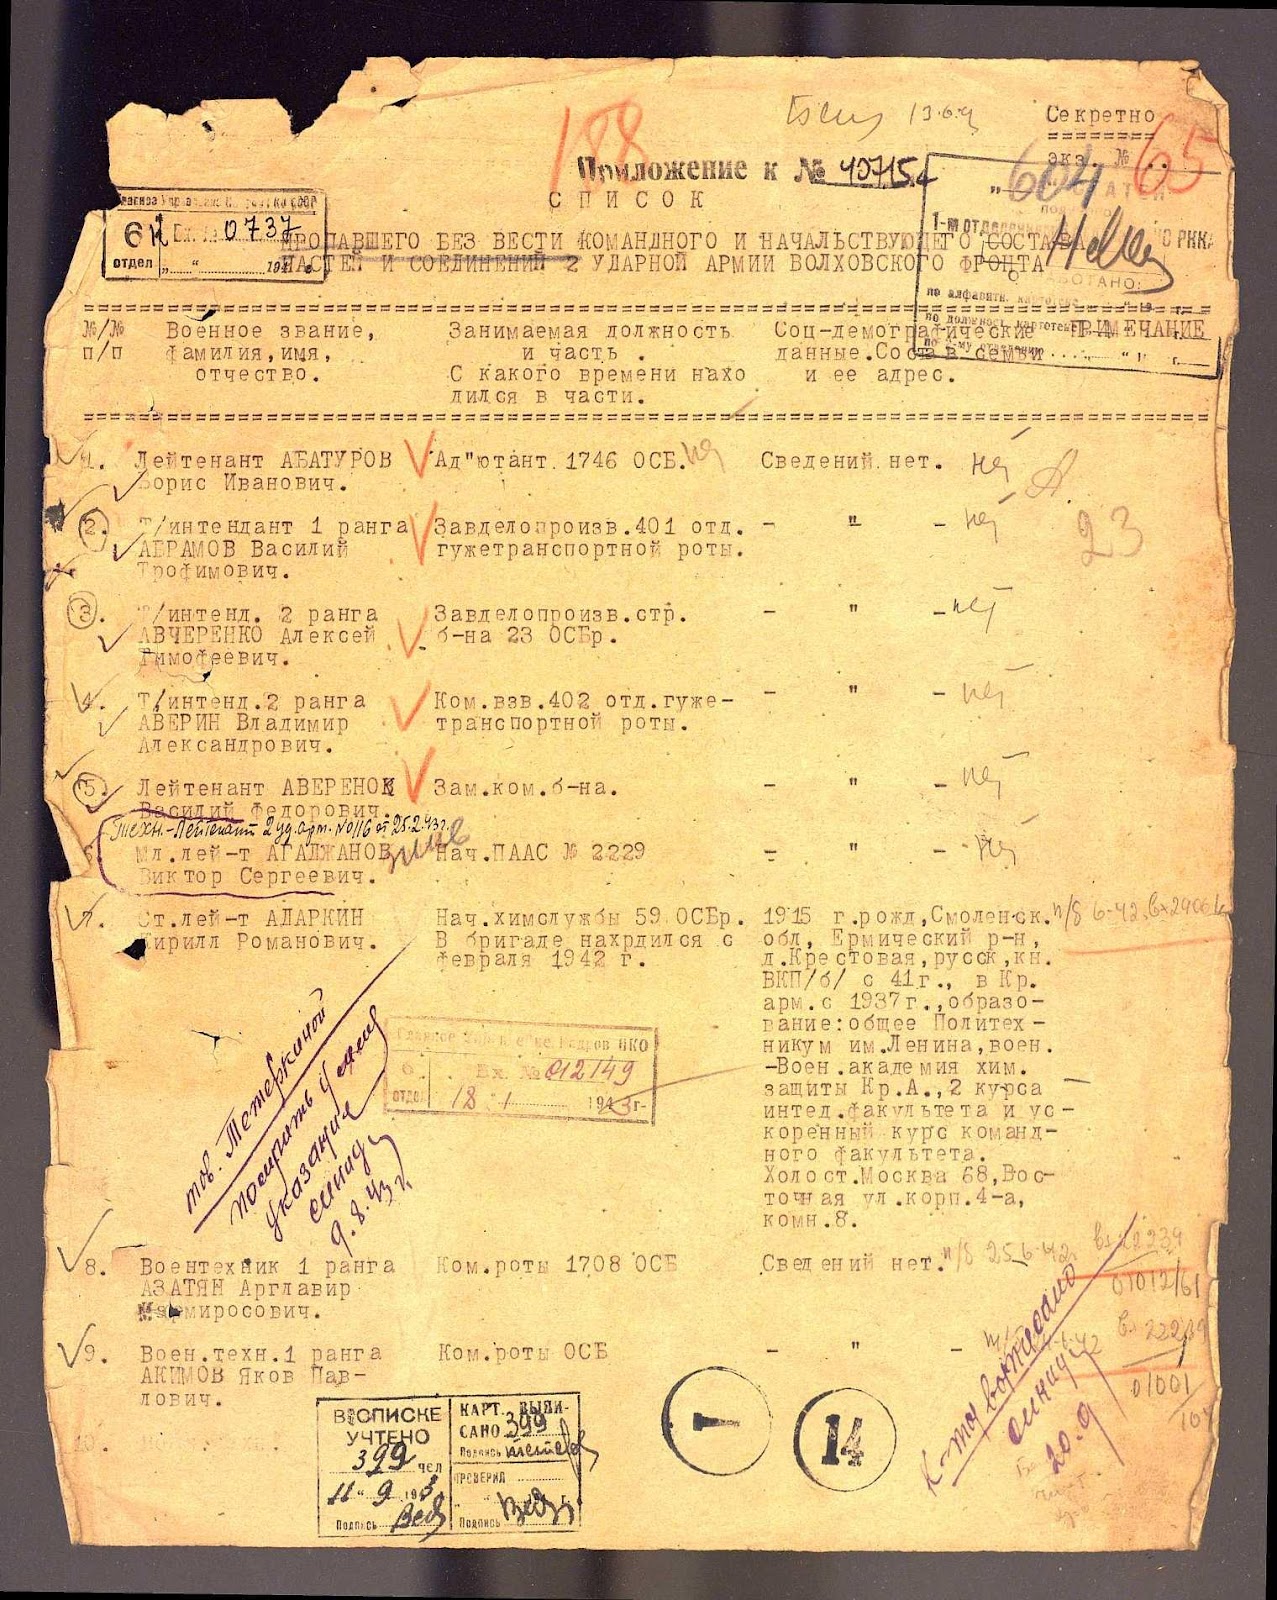 188
13.6.
Секретно
экз. № 65
Приложение к № 40715с
604
СПИСОК
6 отдел Вх. № 0737
1-м отделением
РККА
ПРОПАВШЕГО БЕЗ ВЕСТИ КОМАНДНОГО И НАЧАЛЬСТВУЮЩЕГО СОСТАВА
ЧАСТЕЙ И СОЕДИНЕНИЙ 2 УДАРНОЙ АРМИИ ВОЛХОВСКОГО ФРОНТА
№/№ Военное звание, Занимаемая должность Соц-демографические ПРИМЕЧАНИЕ
п/п фамилия,имя, и часть . данные.Состав семьи
отчество. С какого времени нахо и ее адрес.
дился в части.
1. Лейтенант АБАТУРОВ Ад"ютант 1746 ОСБ. Сведений нет. нет
Борис Иванович.
2. Т/интендант 1 ранга Завделопроизв.401 отд. - " - нет
АБРАМОВ Василий гужетранспортной роты. 23
Трофимович.
3. Т/интенд. 2 ранга Завделопроизв.стр. - " - нет
АВЧЕРЕНКО Алексей б-на 23 ОСБр.
Тимофеевич.
4. Т/интенд.2 ранга Ком.взв.402 отд.гуже- - " - нет
АВЕРИН Владимир транспортной роты.
Александрович.
5. Лейтенант АВЕРЕНОК Зам.ком.б-на. - " - нет
Василий Федорович.
Техн.-Лейтенант 2 уд. арм. №0116 от 25.2.43г.
6. Мл.лей-т АГАДЖАНОВ жив Нач.ПААС № 2229 - " - нет
Виктор Сергеевич.
7. Ст.лей-т АДАРКИН Нач.химслужбы 59 ОСБр. 1915 г.рожд,Смоленск. п/б 6-42
Кирилл Романович. В бригаде нахрдился с обл, Ермический р-н,
февраля 1942 г. д.Крестовая,русск,кн.
ВКП/б/ с 41г., в Кр.
арм.с 1937г.,образо-
вание:общее Политех-
никум им.Ленина,воен.
-Воен.академия хим.
защиты Кр.А.,2 курса
интед.факультета и ус-
коренный курс команд-
ного факультета.
Холост.Москва 68,Вос-
точная ул.корп.4-а,
комн.8.
тов. Тетеркиной
указания
9.8.43г.
Главное Упр-е Кадров НКО
6. отдел Вх. № 012149
18 1 1943г.
8. Воентехник 1 ранга Ком.роты 1708 ОСБ Сведений нет. п/б 25.6.42г. вх 22239
АЗАТЯН Арглавир 01012/61
миросович.
9. Воен.техн.1 ранга Ком.роты ОСБ - " - вх 22239
АКИМОВ Яков Пав- 01001
лович.
20.9
В СПИСКЕ УЧТЕНО
399 чел
11 " 9 1943
Подпись
КАРТ. ВЫПИСАНО 399
Подпись
ПРОВЕРИЛ
Подпись
1
14